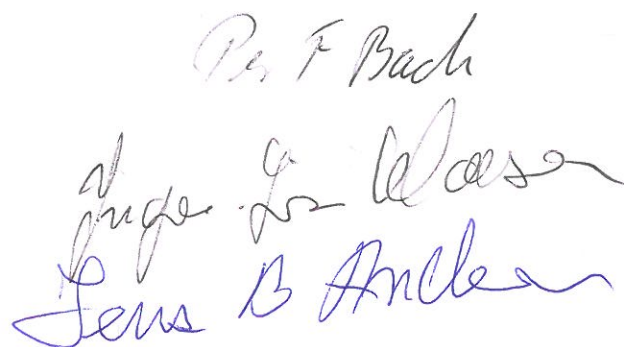 Per F Bach
Inger Lis Claasen
Jens B Andersen